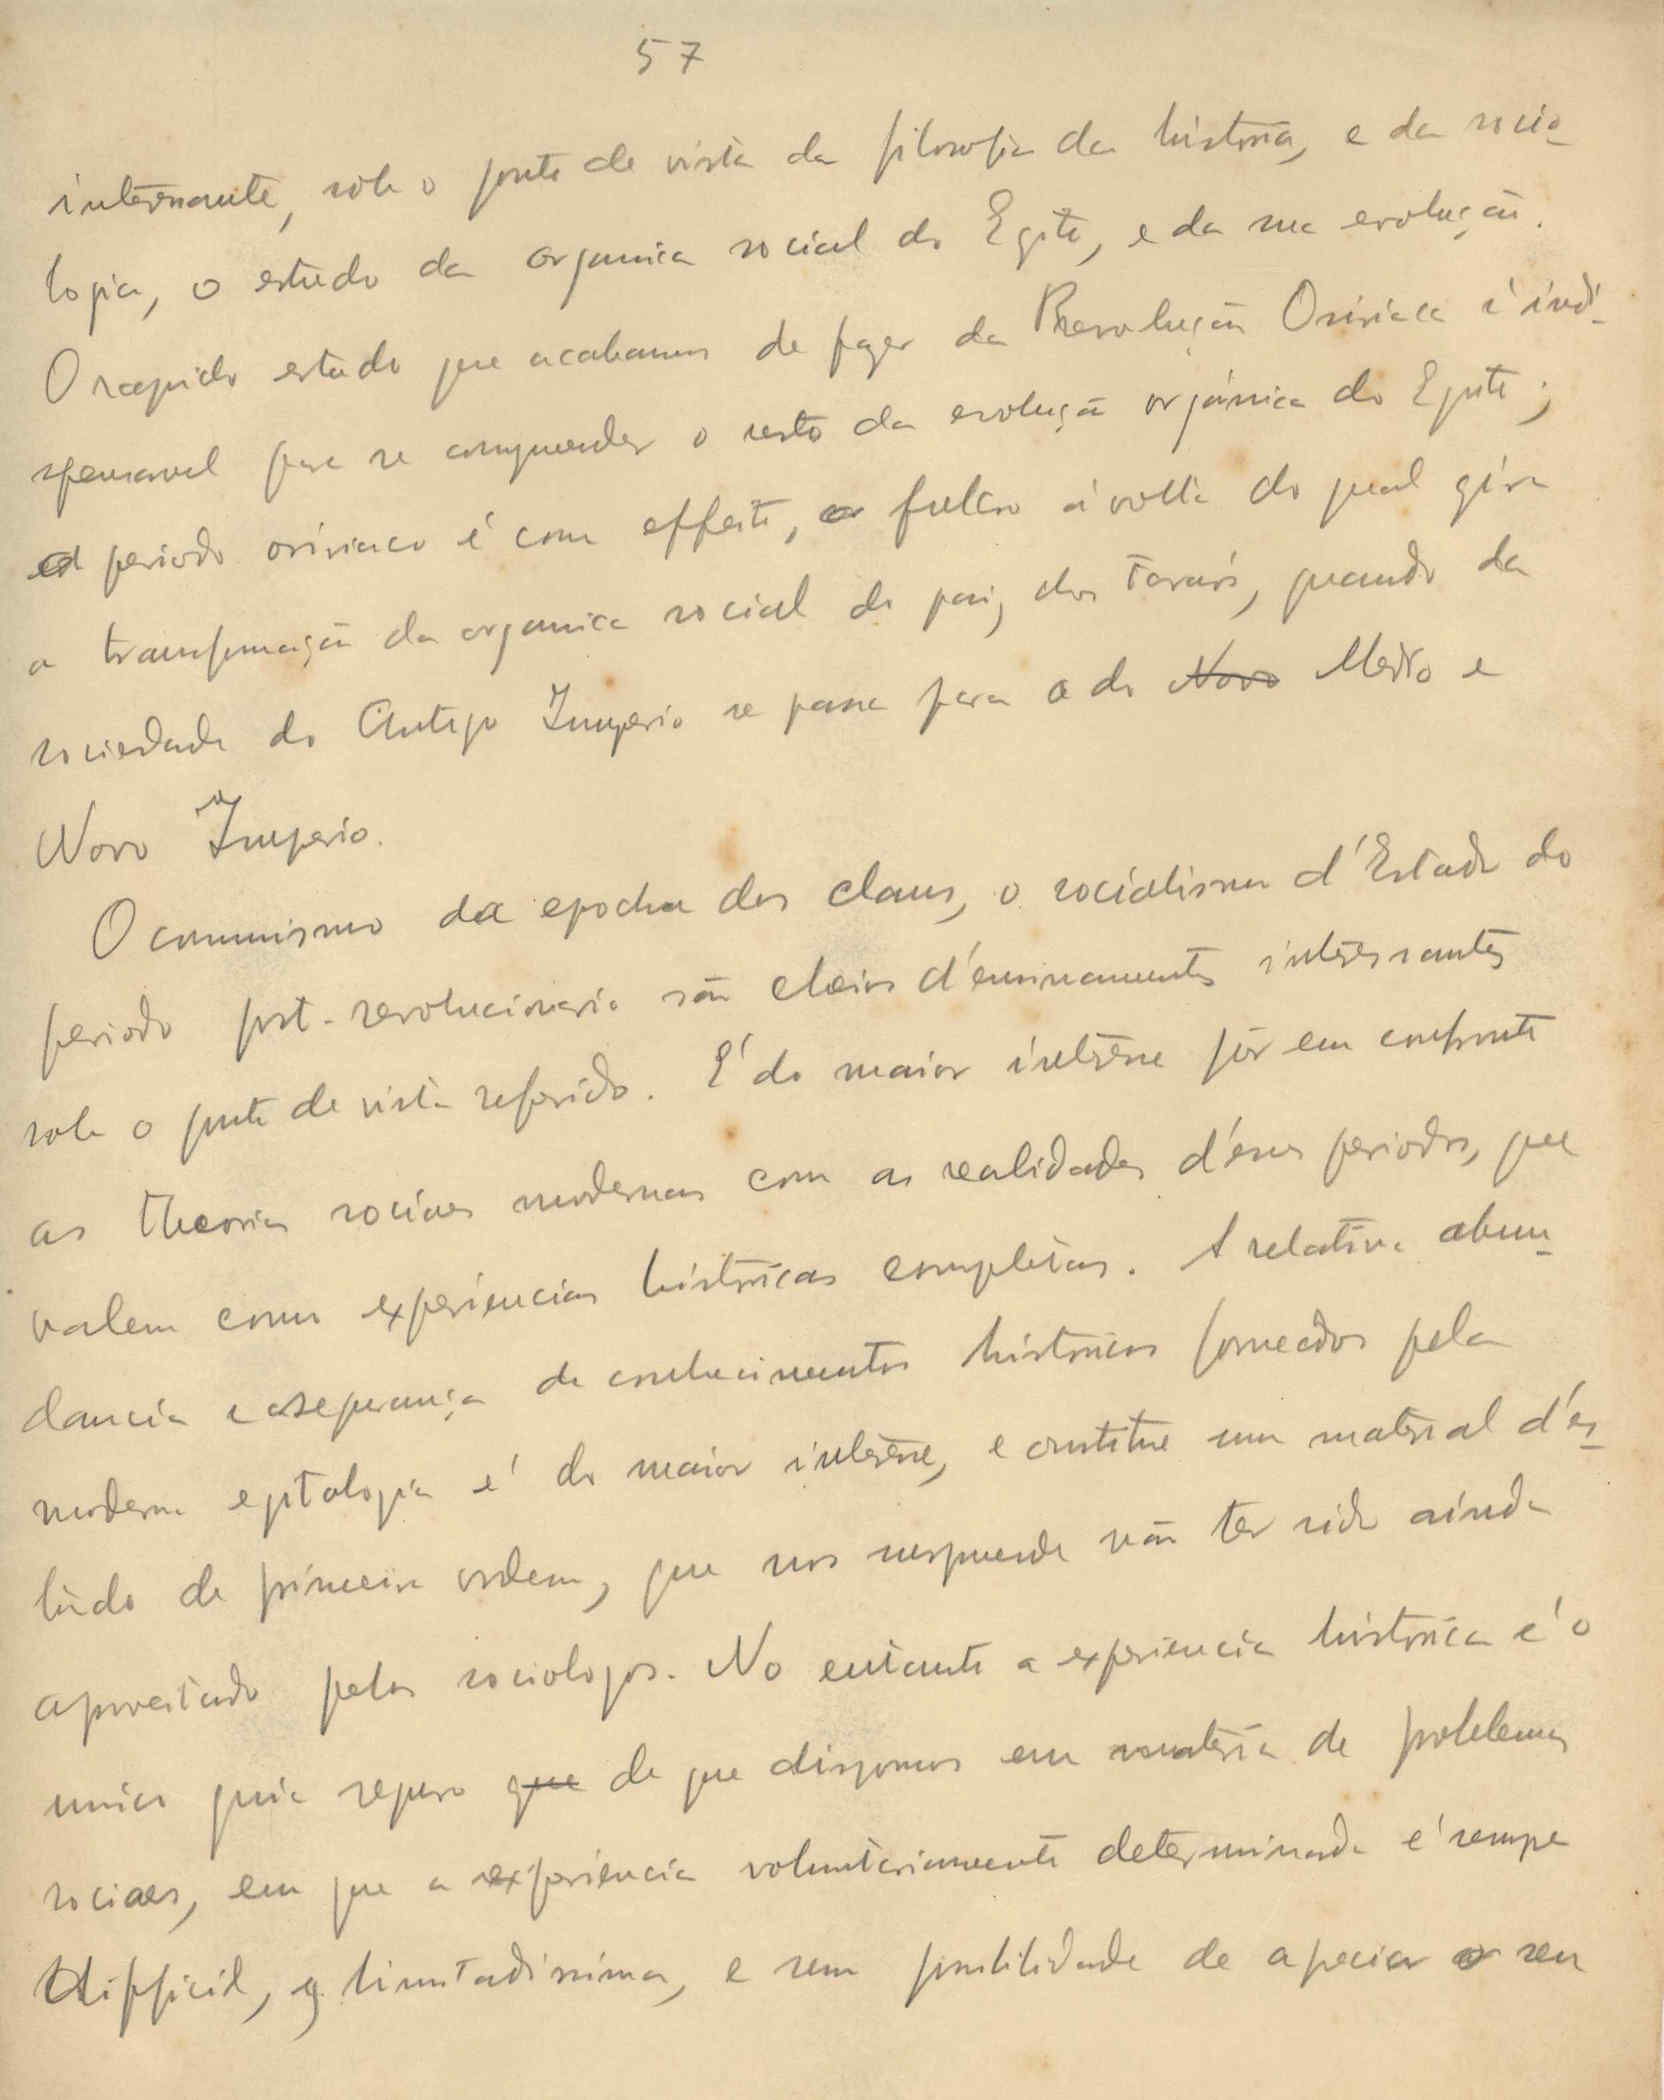 57
interessante, sob o ponto de vista da filosofia da história, e da socio-
logia, o estudo da organica social do Egito, e da sua evolução.
O rapido estudo que acabamos de fazer da Revolução Osiriaca é indi-
spensavel para se comprender o resto da evolução orgánica do Egito;
o periodo osiriaco é com effeito, o fulcro á volta do qual gira
a transformação da organica social do paiz dos faraós, quando da
sociedade do Antigo Imperio se passa para a do Novo Medio e
Novo Imperio.
O comunismo da epocha dos clans, o socialismo d'Estado do
periodo post-revolucionario são cheios d'ensinamentos interessantes
sob o ponto de vista referido. É do maior interesse pôr em confronto
as theorias sociaes modernas com as realidades d'esses periodos, que
valem como experiencias históricas completas. A relativa abun-
dancia e a segurança de conhecimentos históricos fornecidos pela
moderna egitologia é do maior interesse, e constitue um material d'es-
tudo de primeira ordem, que nos surpreende não ter sido ainda
aproveitado pelos sociologos. No entanto a experiencia histórica é o
unico guia seguro que de que dispomos em materia de problemas
sociaes, em que a experiencia voluntariamente determinada é sempre
difficil, limitadissima, e sem possibilidade de apreciar o seu